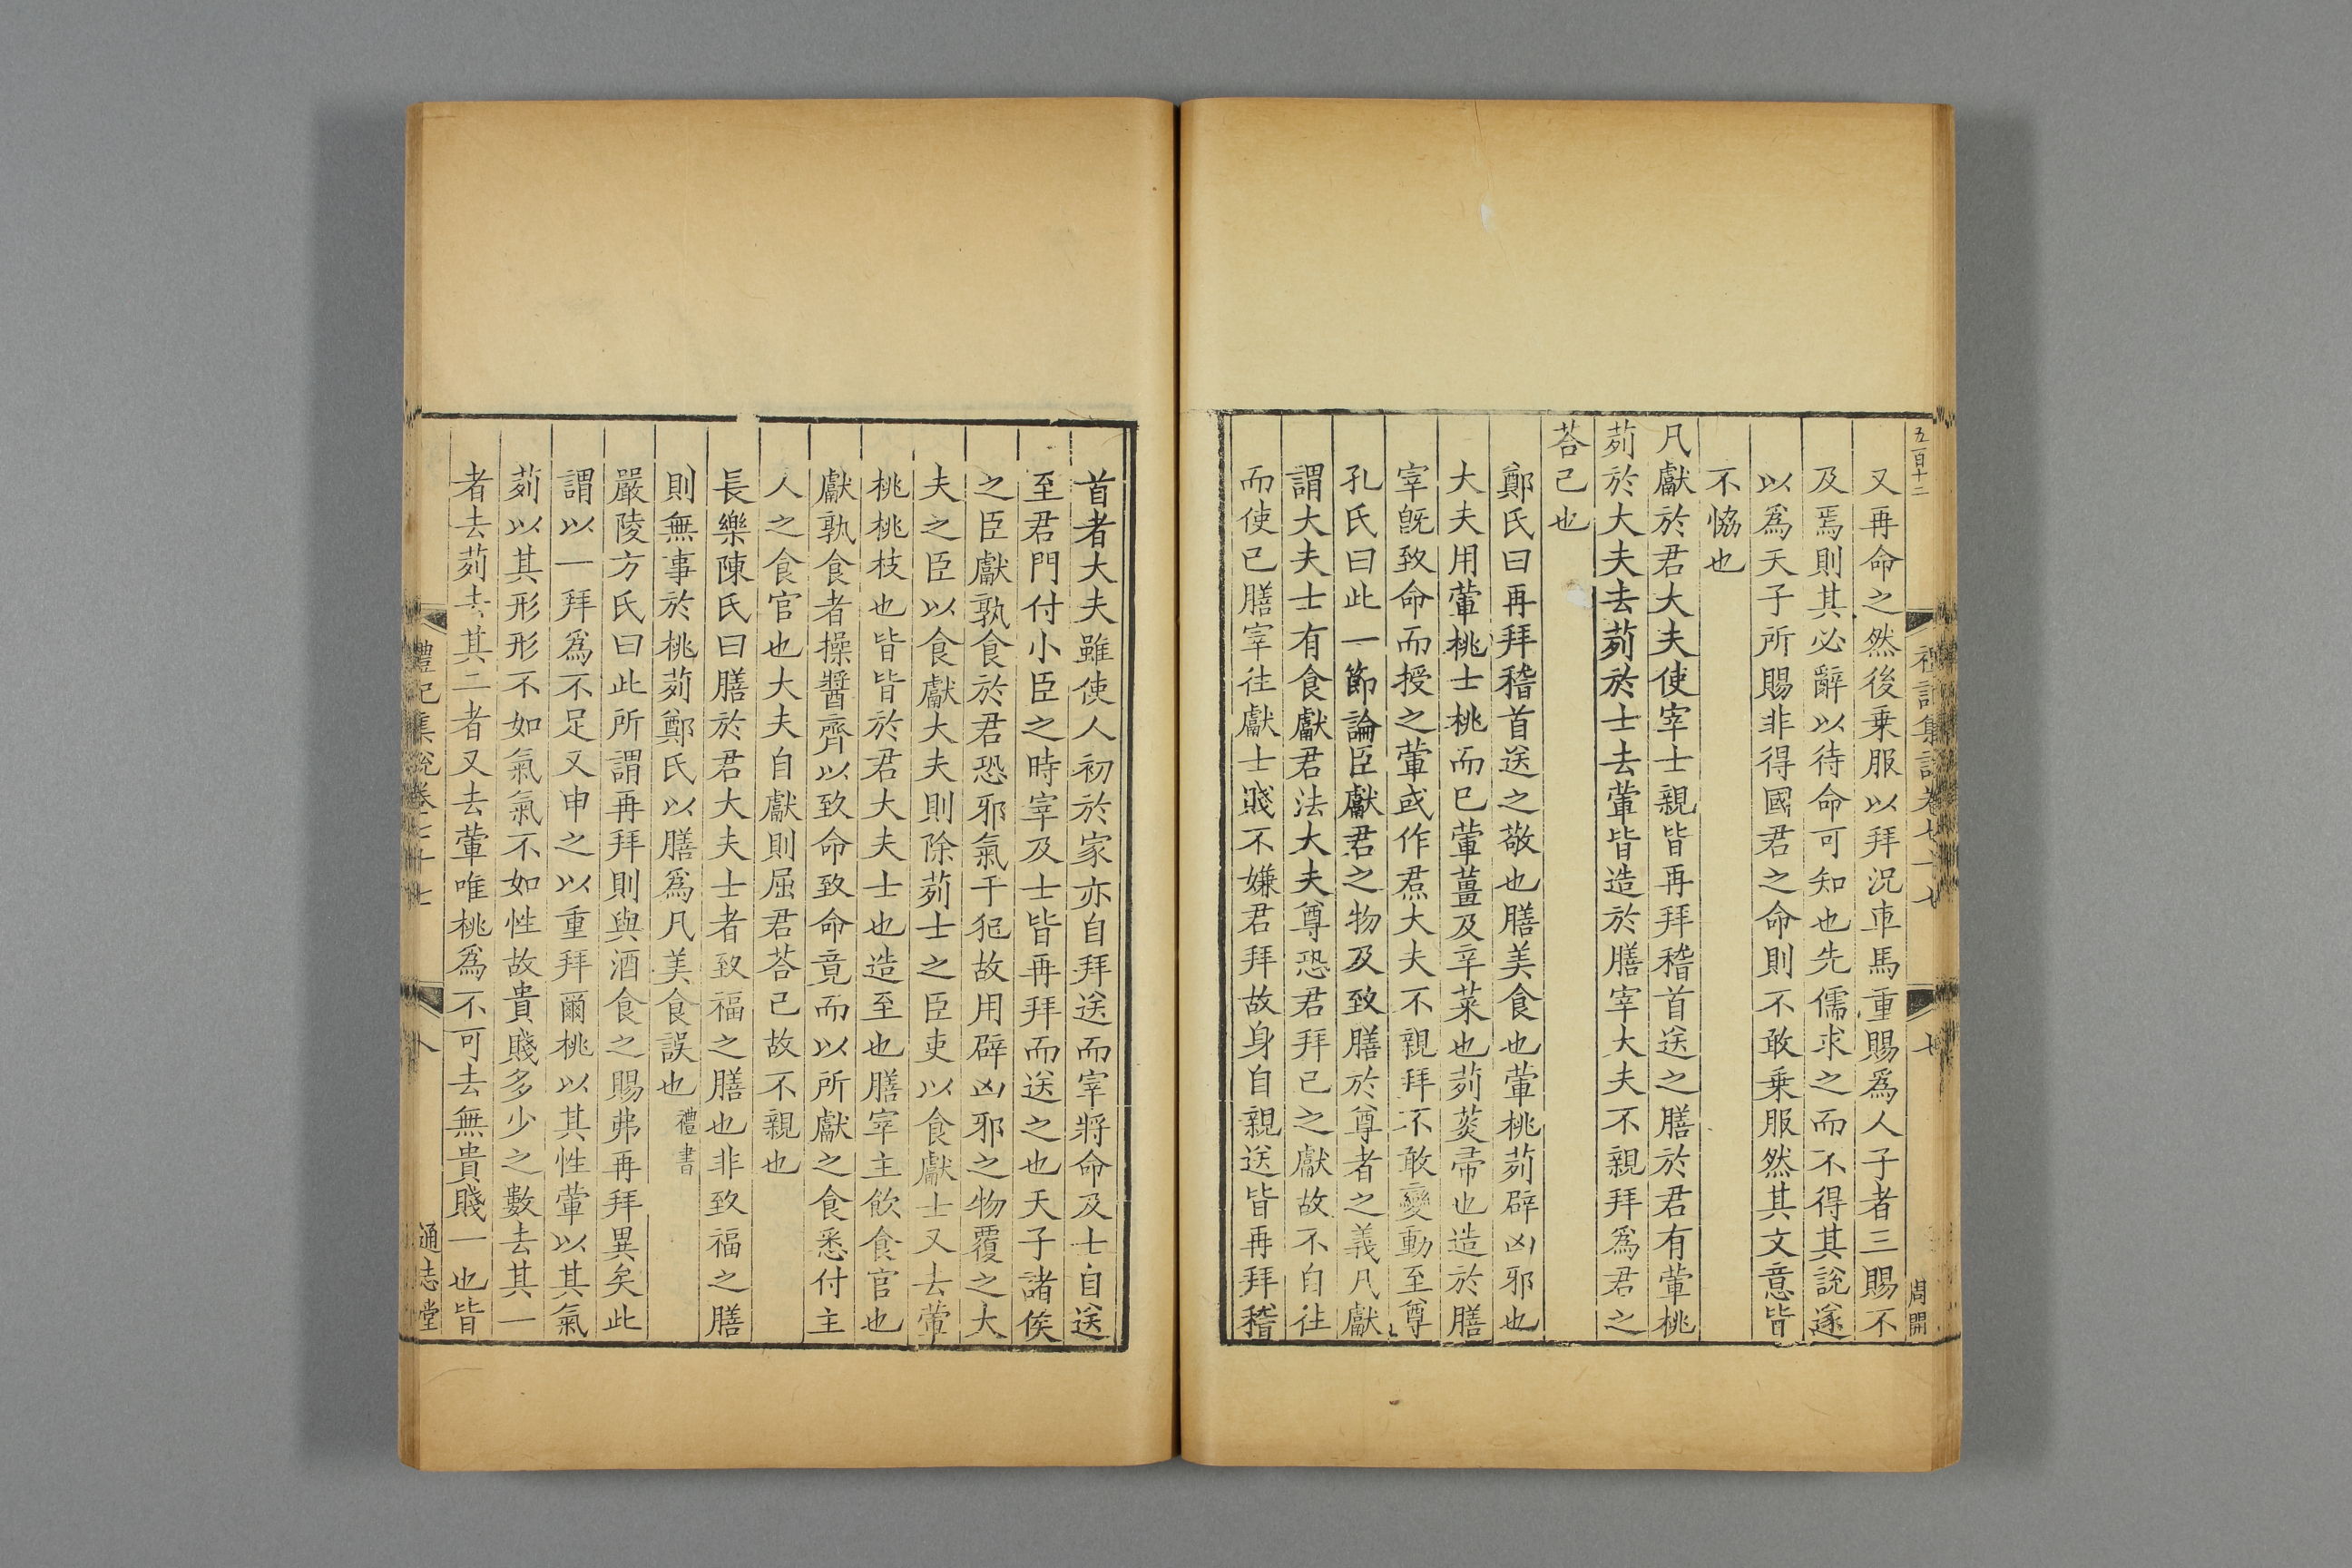 五百十二
禮記集說卷七十七
七
周開
又再命之然後乗服以拜况車馬重賜爲人子者三賜不
及焉則其必辭以待命可知也先儒求之而不得其說遂
以爲天子所賜非得國君之命則不敢乗服然其文意皆
不恊也
凡獻於君大夫使宰士親皆再拜稽首送之膳於君有葷桃
茢於大夫去茢於士去葷皆造於膳宰大夫不親拜爲君之
荅己也
鄭氏曰再拜稽首送之敬也膳美食也葷桃茢辟凶邪也
大夫用葷桃士桃而已葷薑及辛菜也茢菼帚也造於膳
宰旣致命而授之葷或作焄大夫不親拜不敢變動至尊
孔氏曰此一節論臣獻君之物及致膳於尊者之義凡獻
謂大夫士有食獻君法大夫尊恐君拜己之獻故不自往
而使已膳宰往獻士賤不嫌君拜故身自親送皆再拜稽
首者大夫雖使人初於家亦自拜送而宰將命及士自送
至君門付小臣之時宰及士皆再拜而送之也天子諸侯
之臣獻孰食於君恐邪氣干犯故用辟凶邪之物覆之大
夫之臣以食獻大夫則除茢士之臣吏以食獻士又去葷
桃桃枝也皆皆於君大夫士也造至也膳宰主飲食官也
獻孰食者操醬齊以致命致命竟而以所獻之食悉付主
人之食官也大夫自獻則屈君荅己故不親也
長樂陳氏曰膳於君大夫士者致福之膳也非致福之膳
則無事於桃茢鄭氏以膳爲凡美食誤也禮書
嚴陵方氏曰此所謂再拜則與酒食之賜弗再拜異矣此
謂以一拜爲不足又申之以重拜爾桃以其性葷以其氣
茢以其形形不如氣氣不如性故貴賤多少之數去其一
者去茢去其二者又去葷唯桃爲不可去無貴賤一也皆
禮記集說卷七十七
八
通志堂